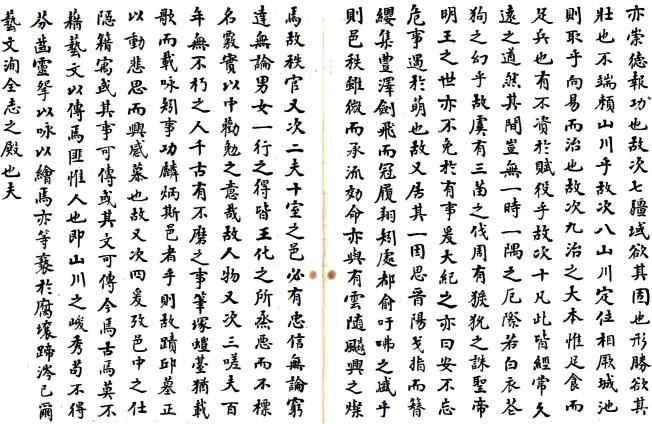 亦崇德報功也故次七疆域欲其固也形勝欲其
壯也不端賴山川乎故次八山川定位相厥城池
則取乎向易而治也故次九治之大本惟足食而
足兵也有不資於賦役乎故次十凡此皆經常久
遠之道然其間豈無一時一隅之厄際若白衣蒼
狗之幻乎故虞有三苗之伐周有玁狁之誅聖帝
明王之世亦不免於有事爰大紀之亦曰安不忘
危事遇於萌也故又居其一因思晉陽戈指而簪
纓集豐澤劍飛而冠履翔矧處都俞吁咈之盛乎
則邑秩雖微而承流効命亦與有雲随飈興之燦
焉故秩官又次二夫十室之邑必有忠信無論窮
達無論男女一行之得皆王化之所烝焉而不標
名覈實以中勸勉之意哉故人物又次三嗟夫百
年無不朽之人千古有不磨之事筆塚螘臺猶載
歌而載咏矧事功麟炳斯邑者乎則故蹟邱墓正
以動悲思而興感慕也故又次四爰攷邑中之仕
隱籍寓或其事可傳或其文可傳今焉古焉莫不
藉藝文以傳焉匪惟人也即山川之峻秀苟不得
芬菑靈筆以咏以繪焉亦等褻於腐壤蹄涔已爾
藝文洵全志之殿也夫